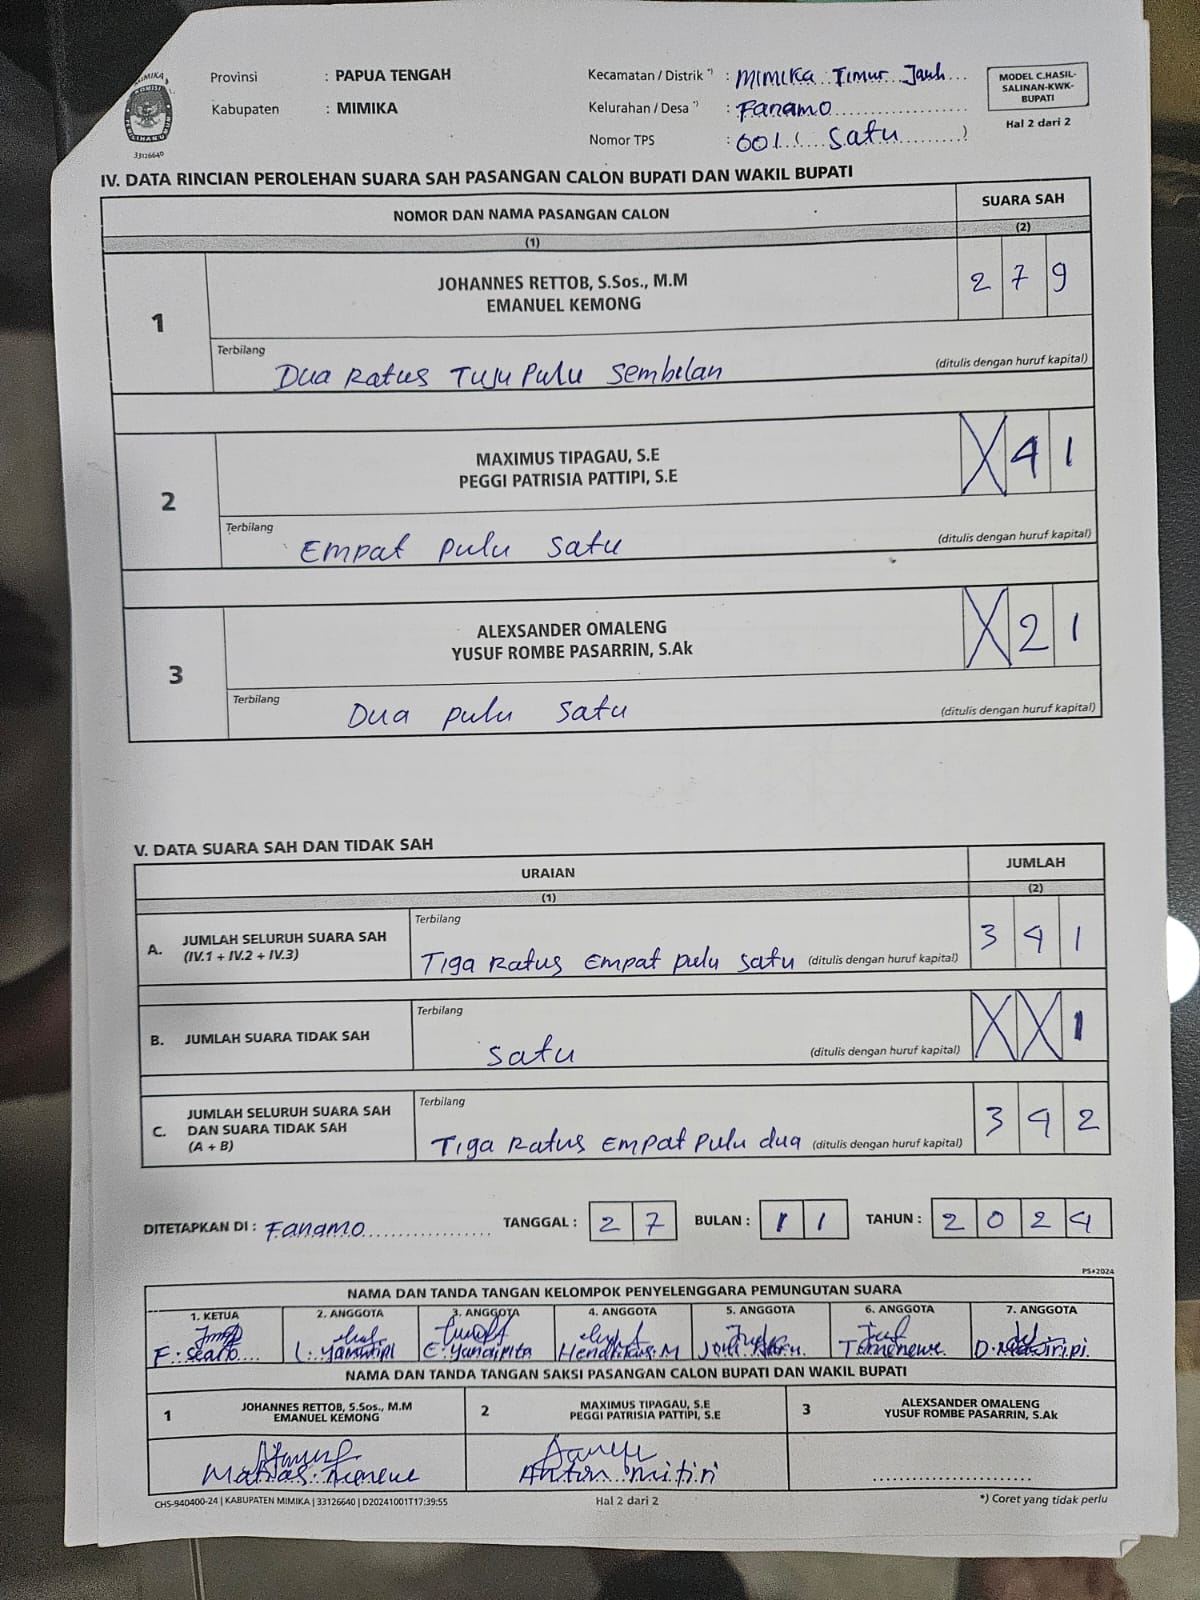 MIMIKA
33126640
Provinsi : PAPUA TENGAH
Kabupaten : MIMIKA
Kecamatan / Distrik *) : MIMIKA Timur Jauh
Kelurahan / Desa *) : Fanamo
Nomor TPS : 001 ( Satu )
MODEL C.HASIL-
SALINAN-KWK-
BUPATI
Hal 2 dari 2
IV. DATA RINCIAN PEROLEHAN SUARA SAH PASANGAN CALON BUPATI DAN WAKIL BUPATI
NOMOR DAN NAMA PASANGAN CALON SUARA SAH
(1) (2)
1 JOHANNES RETTOB, S.Sos., M.M
EMANUEL KEMONG 2 7 9
Terbilang
Dua Ratus Tuju Pulu Sembilan (ditulis dengan huruf kapital)
2 MAXIMUS TIPAGAU, S.E
PEGGI PATRISIA PATTIPI, S.E X 4 1
Terbilang
Empat pulu satu (ditulis dengan huruf kapital)
3 ALEXSANDER OMALENG
YUSUF ROMBE PASARRIN, S.Ak X 2 1
Terbilang
Dua pulu satu (ditulis dengan huruf kapital)
V. DATA SUARA SAH DAN TIDAK SAH
URAIAN JUMLAH
(1) (2)
A. JUMLAH SELURUH SUARA SAH
(IV.1 + IV.2 + IV.3)
Terbilang
Tiga Ratus Empat pulu satu (ditulis dengan huruf kapital) 3 4 1
B. JUMLAH SUARA TIDAK SAH
Terbilang
satu (ditulis dengan huruf kapital) X X 1
C. JUMLAH SELURUH SUARA SAH
DAN SUARA TIDAK SAH
(A + B)
Terbilang
Tiga Ratus Empat Pulu dua (ditulis dengan huruf kapital) 3 4 2
DITETAPKAN DI : Fanamo TANGGAL : 2 7 BULAN : 1 1 TAHUN : 2 0 2 4
PS•2024
NAMA DAN TANDA TANGAN KELOMPOK PENYELENGGARA PEMUNGUTAN SUARA
1. KETUA 2. ANGGOTA 3. ANGGOTA 4. ANGGOTA 5. ANGGOTA 6. ANGGOTA 7. ANGGOTA
NAMA DAN TANDA TANGAN SAKSI PASANGAN CALON BUPATI DAN WAKIL BUPATI
1 JOHANNES RETTOB, S.Sos., M.M
EMANUEL KEMONG
2 MAXIMUS TIPAGAU, S.E
PEGGI PATRISIA PATTIPI, S.E
3 ALEXSANDER OMALENG
YUSUF ROMBE PASARRIN, S.Ak
CHS-940400-24 | KABUPATEN MIMIKA | 33126640 | D20241001T17:39:55 Hal 2 dari 2 *) Coret yang tidak perlu